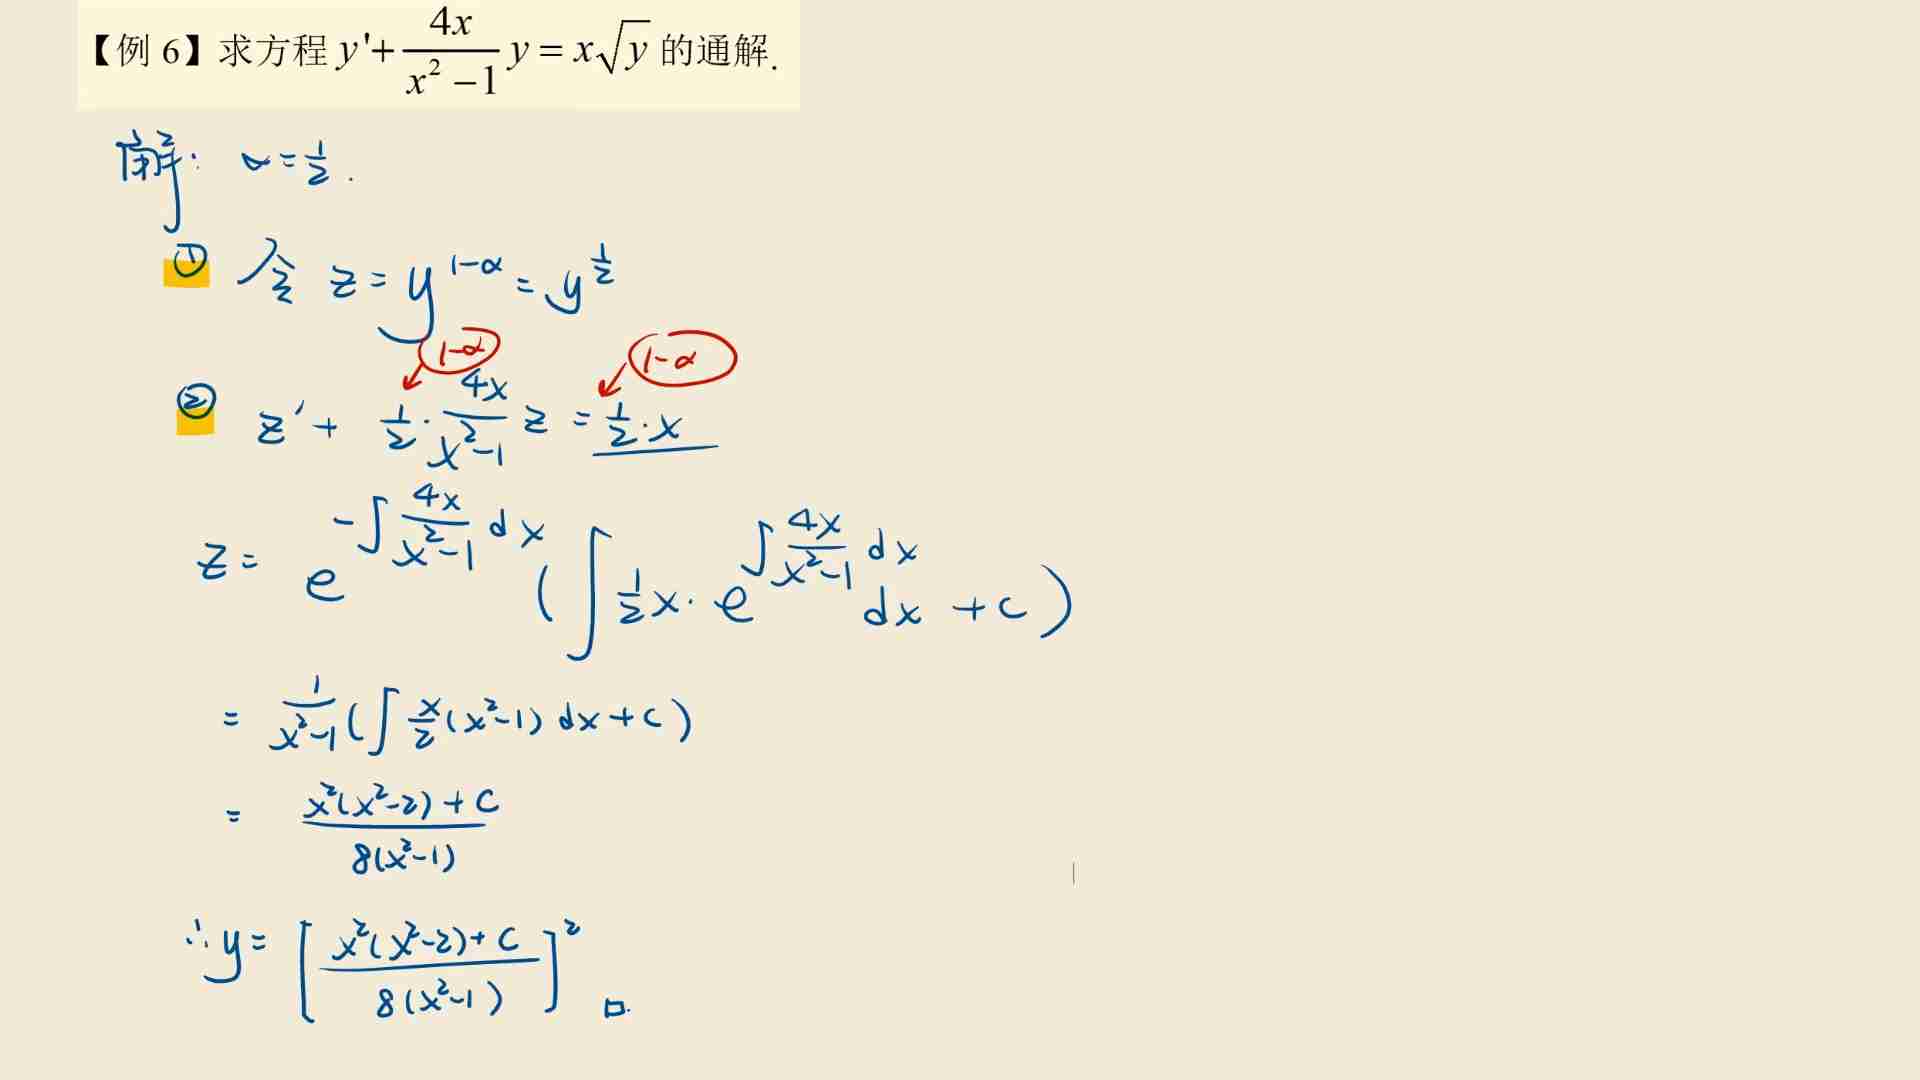 【例 6】求方程 y'+ 4x/(x²−1) y = x√y 的通解.
解: α = 1/2 .
① 令 z = y^(1-α) = y^(1/2)
1-α 1-α
② z' + 1/2 · 4x/(x²-1) z = 1/2 · x
z = e^(-∫ 4x/(x²-1) dx) ( ∫ 1/2 x · e^(∫ 4x/(x²-1) dx) dx + c )
= 1/(x²-1) ( ∫ x/2 (x²-1) dx + c )
= (x²(x²-2) + C)/(8(x²-1))
∴ y = [ (x²(x²-2) + C)/(8(x²-1)) ]² □.